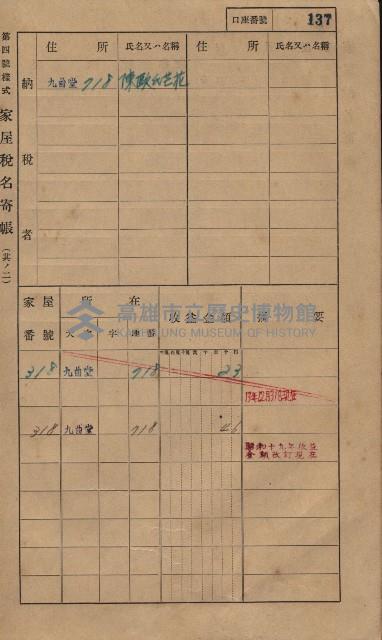 口座番號 137
第四號樣式 家屋稅名寄帳 (其ノ二)
納稅者
住所 氏名又ハ名稱 住所 氏名又ハ名稱
九曲堂 718 陳歐氏芒花
家屋番號 所在 收益金額 摘要
大字 字 地番
318 九曲堂 718 23
19年12月31日現在
318 九曲堂 718 46
昭和十九年收益
金額改訂現在
高雄市立歷史博物館
KAOHSIUNG MUSEUM OF HISTORY